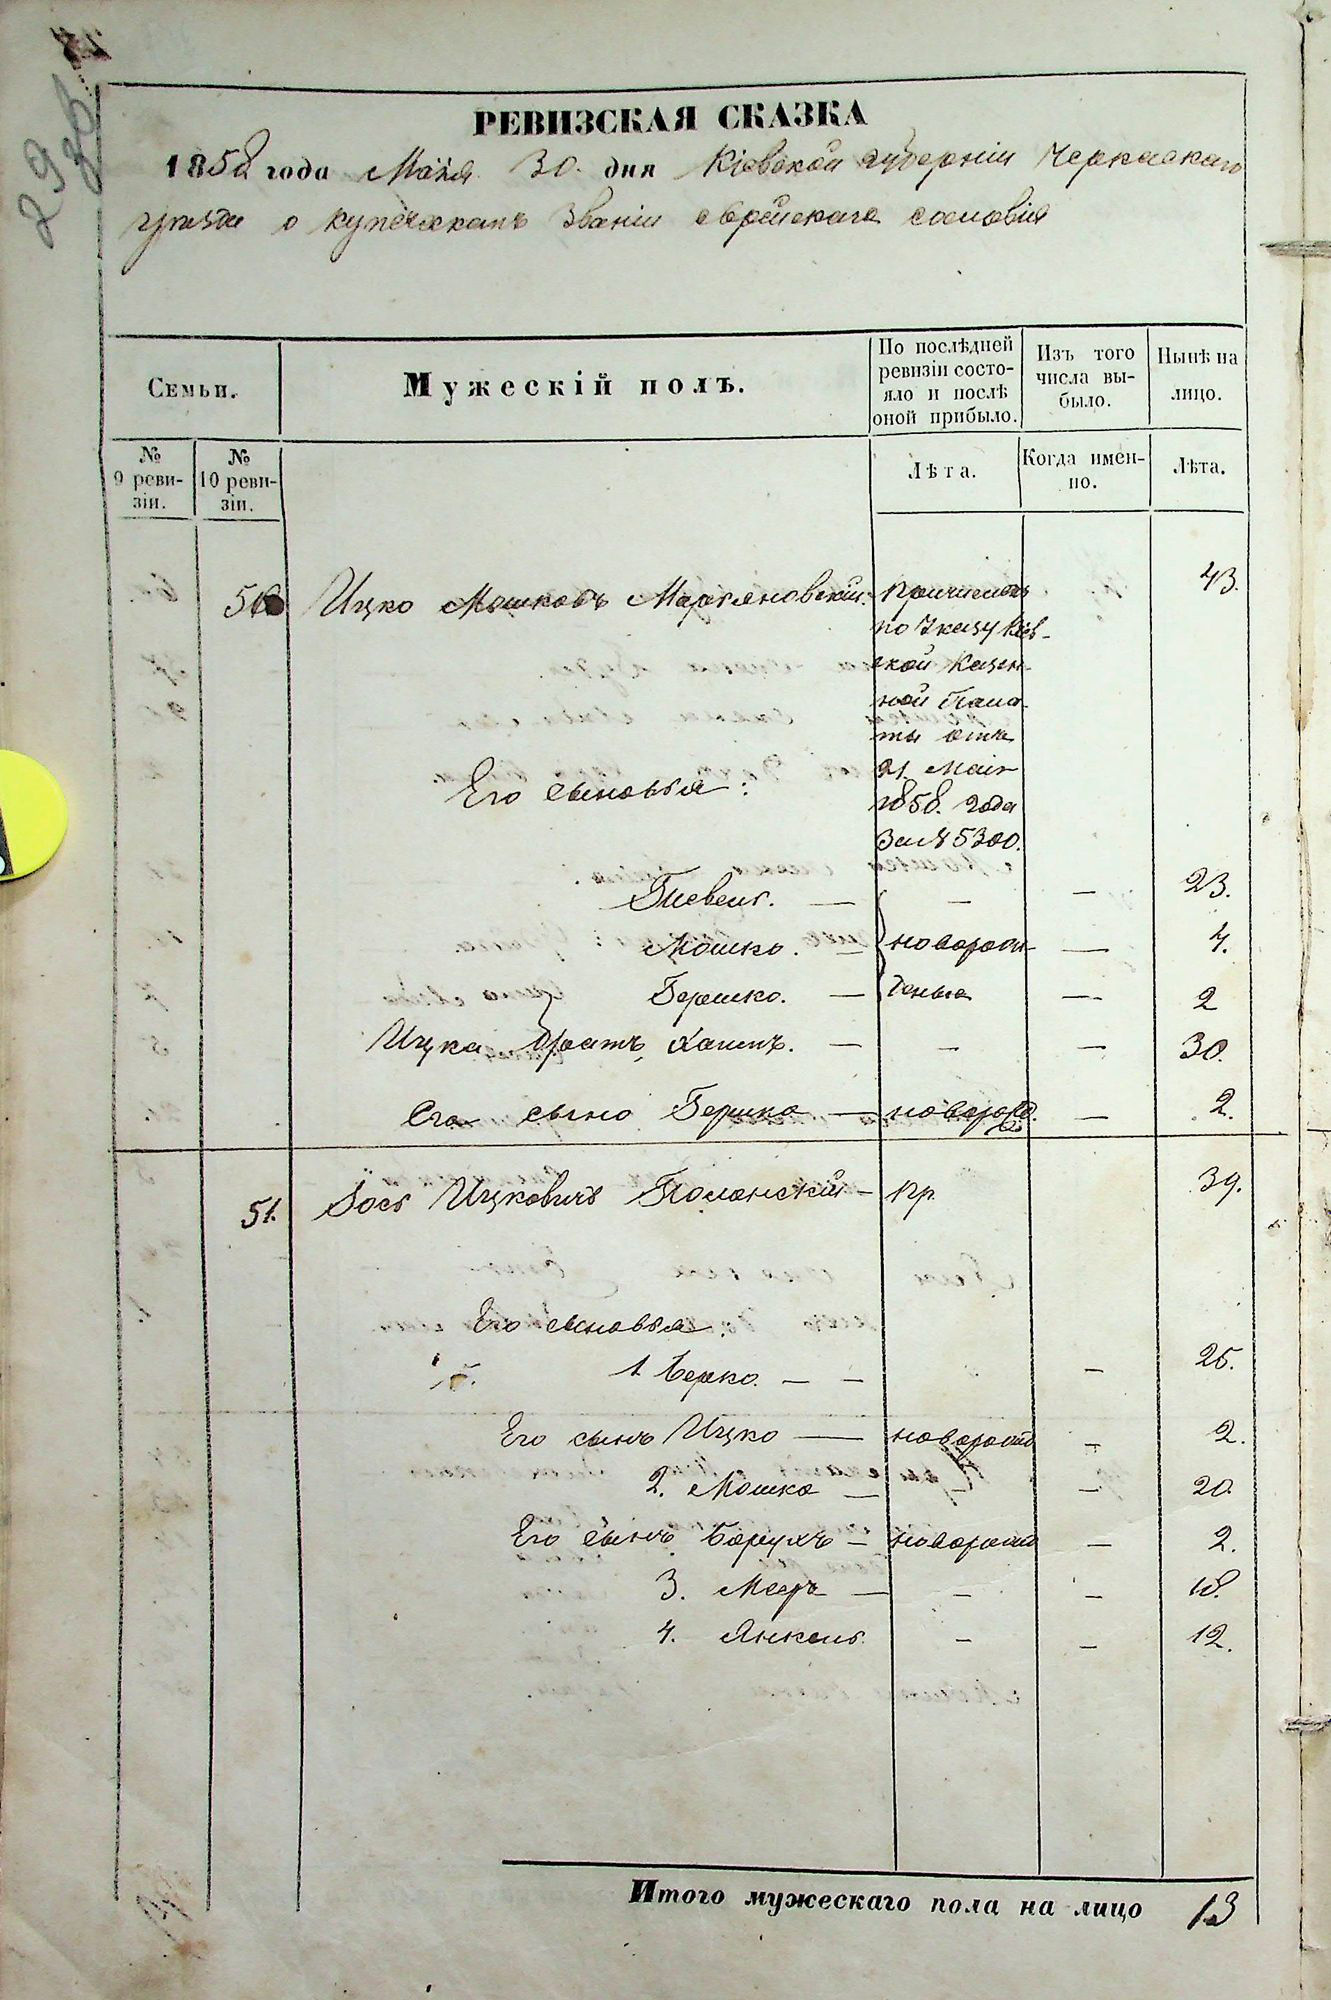 293
РЕВИЗСКАЯ СКАЗКА
1858 года Маія 30. дня Кіевской губерніи Черкаскаго
уѣзда о купеческомъ званіи еврейскаго сословія
Семьи.
Мужескій полъ.
По послѣдней ревизіи состояло и послѣ оной прибыло.
Изъ того числа выбыло.
Нынѣ на лицо.
№ 9 ревизіи.
№ 10 ревизіи.
Лѣта.
Когда именно.
Лѣта.
50 Ицко Мошковъ причисленъ 43.
по Указу Кіев-
ской Казен-
ной Пала-
ты отъ
Его сыновья: 21. Маія
1858. года
за № 5300.
— — — 23.
Мошко. — новорож- — 4.
Бершко. — денные — 2
Ицка братъ Хаимъ. — — — 30.
Его сынъ Бершко — новорожд. — 2.
51. Іось Ицковичъ Полонскій — пр. 39.
Его сыновья:
1. Берко. — — — 25.
Его сынъ Ицко — новорожд — 2.
2. Мошко — — 20
Его сынъ Борухъ — новорожд — 2.
3. Мееръ — — — 18.
4. Янкель — — 12.
Итого мужескаго пола на лицо 13